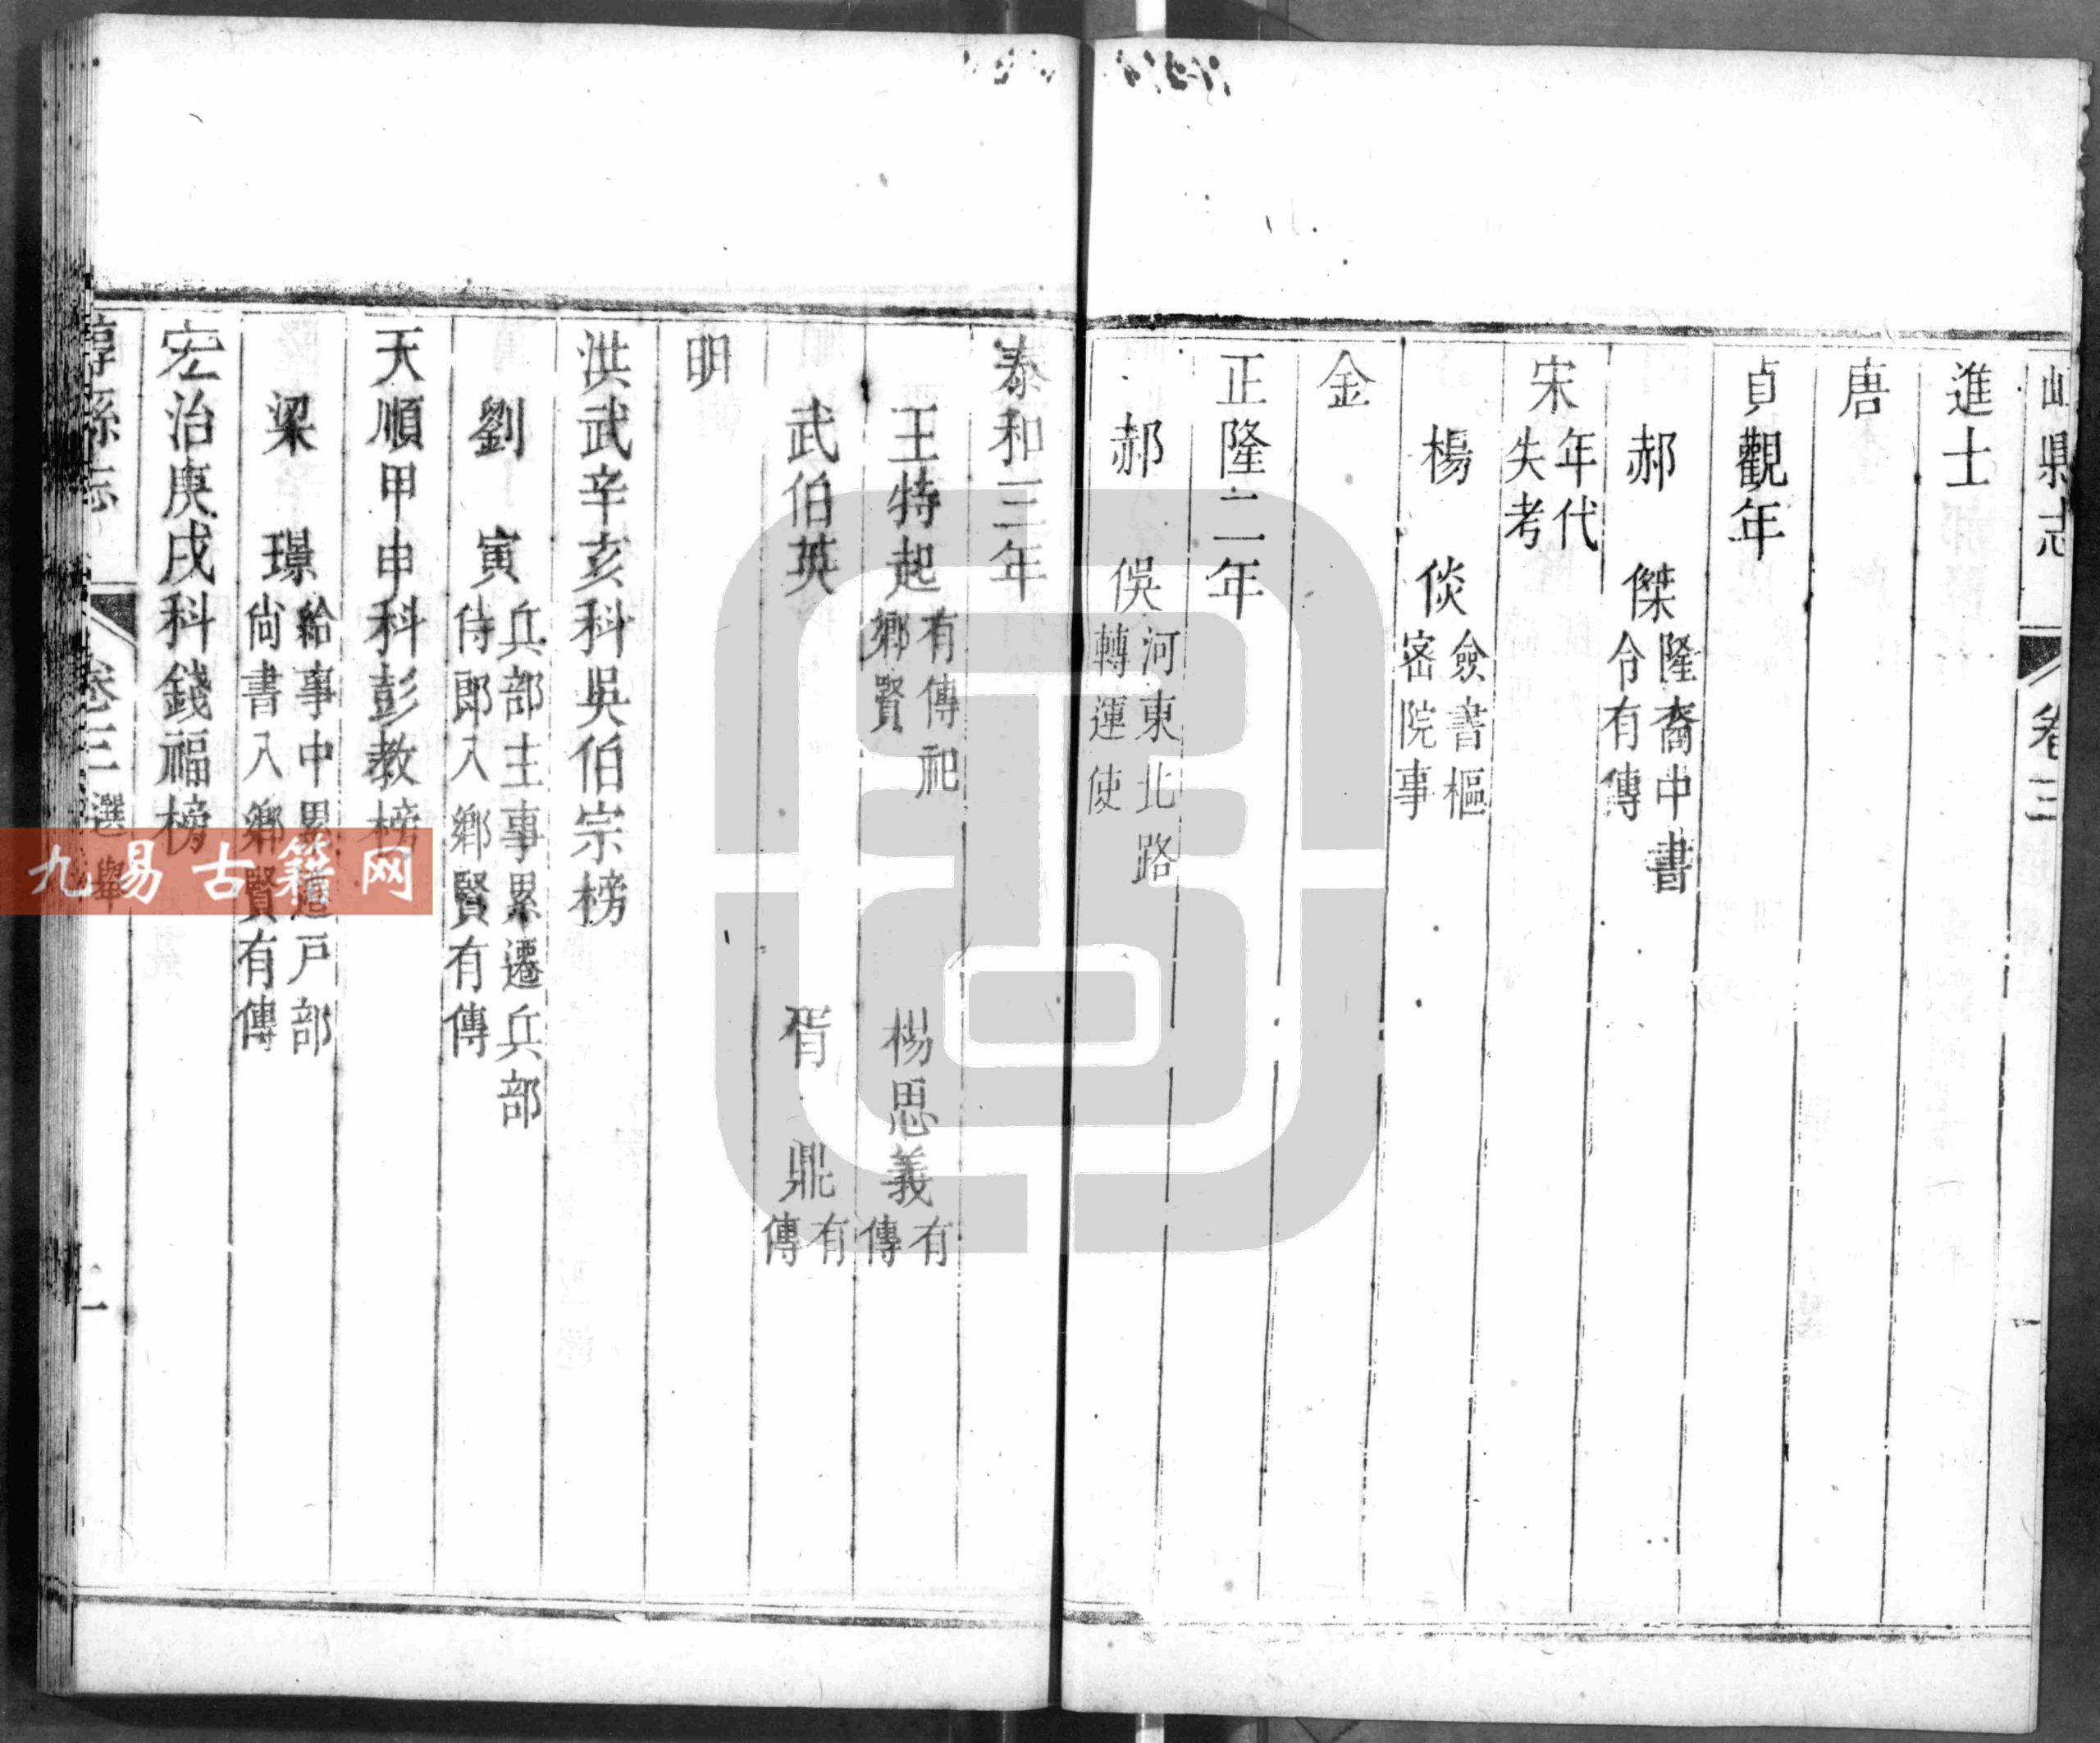 縣志
卷三
進士
唐
貞觀年
郝 傑 隆裔中書
令有傳
宋 年代
失考
楊 倓 僉書樞
密院事
金
正隆二年
郝 俁 河東北路
轉運使
泰和三年
王特起 有傳祀
鄉賢
楊思義 有
傳
武伯英
胥 鼎 有
傳
明
洪武辛亥科吳伯宗榜
劉 寅 兵部主事累遷兵部
侍郎入鄉賢有傳
天順甲申科彭教榜
梁 璟 給事中累遷戶部
尚書入鄉賢有傳
宏治庚戌科錢福榜
縣志
卷三 選舉
一
九易古籍网